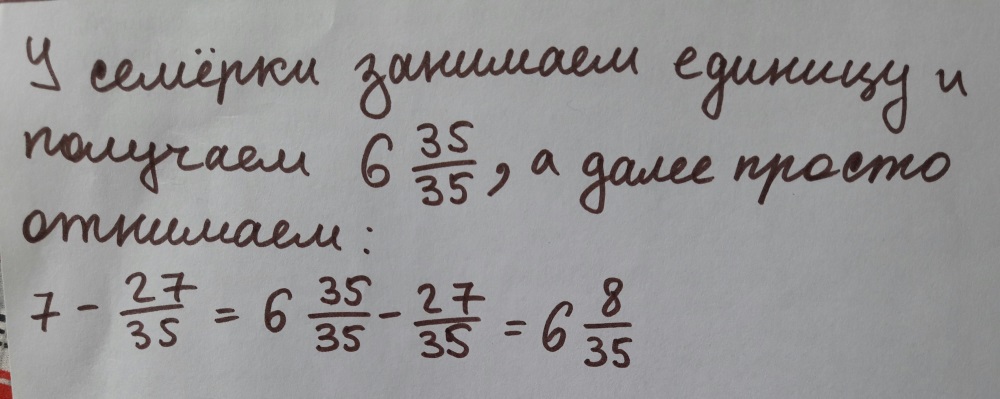 У семёрки занимаем единицу и
получаем 6 35/35, а далее просто
отнимаем:
7 - 27/35 = 6 35/35 - 27/35 = 6 8/35